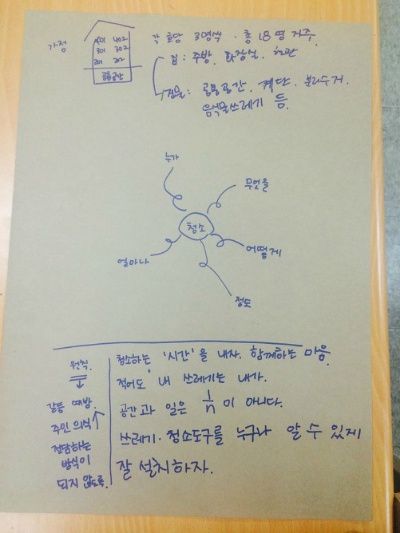 가정
401 402
301 302
201 202
공용공간
각 호당 3명씩. 총 18명 거주.
집 : 주방, 화장실, 현관
건물 : 공용공간, 계단, 분리수거,
음식물쓰레기 등.
누가
무엇을
청소
어떻게
얼마나
정도
원칙
갈등 예방
주인의식
전담하는
방식이
되지 않도록.
청소하는 '시간'을 내자. 함께하는 마음.
적어도 내 쓰레기는 내가.
공간과 일은 1/n이 아니다.
쓰레기. 청소도구를 누구나 알 수 있게
잘 설치하자.